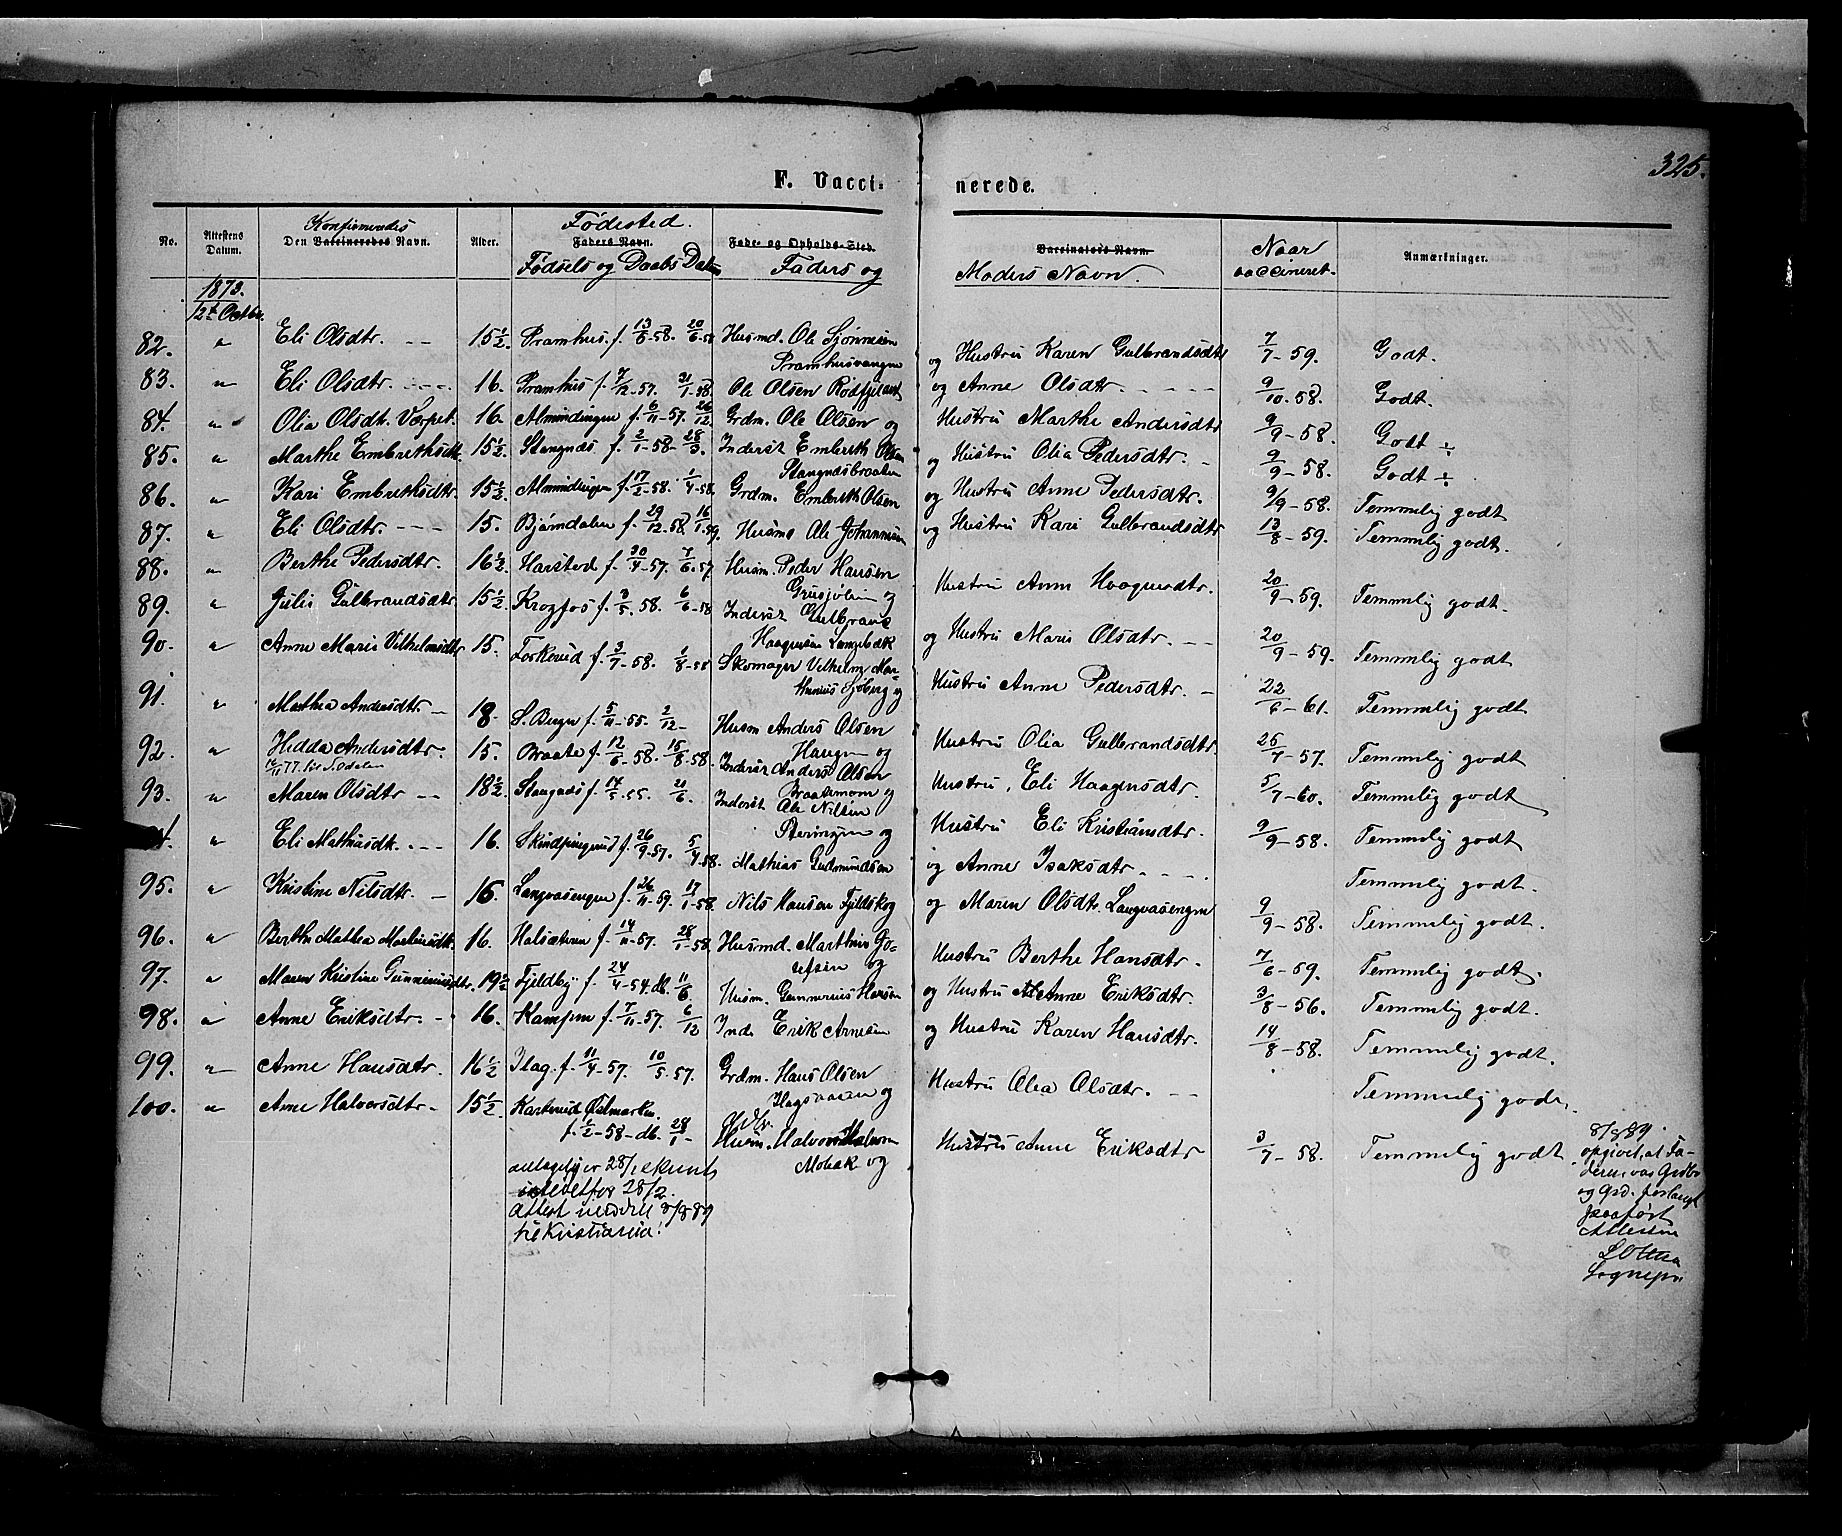 325.
F. Vacci- nerede.
No. Attestens Datum. Konfirmendes Den Vaccineredes Navn. Alder. Fødested. Faders Navn. Fødsels og Daabs Datum Føde- og Opholds-Sted. Faders og Moders Navn. Vaccinators Navn. Naar vaccineret. Anmærkninger.
1873.
12te Octbr.
82. " Eli Olsdtr. 15 1/2. Pramhus. f. 13/5-58. 20/6-58 Husmd. Ole Sjønnesen Pramhusvangen og Hustru Karen Gulbrandsdtr 7/7-59. Godt.
83. " Eli Olsdtr. 16. Pramhus f. 7/12-57. 31/1-58. Ole Olsen og Anne Olsdtr. 9/10-58. Godt.
84. " Olia Olsdtr.Værpet. 16. Almindingen f. 6/11-57. 26/12 Grdm. Ole Olsen og Hustru Marthe Andersdtr 9/9-58. Godt ÷
85. " Marthe Embrethsdtr. 15 1/2. Stangnæs f. 2/1-58- 28/3. Inderst Embreth Olsen Stangnæsbraaten og Hustru Olia Pedersdtr. 9/9-58. Godt ÷
86. " Kari Embrethsdtr. 15 1/2. Almindingen f. 17/2-58. 1/4-58. Grdm. Embreth Olsen og Hustru Anne Pedersdtr. 9/9-58. Temmelig godt
87. " Eli Olsdtr. 15. Bjørndalen f. 29/12-58 16/1-59. Husmd Ole Johannesen og Hustru Kari Gulbrandsdtr 13/8-59. Temmelig godt.
88. " Berthe Pedersdtr. 16 1/2. Harsted f. 30/4-57. 7/6-57 Husm. Peder Hansen og Hustru Anne Haagensdtr. 20/9-59. Temmelig godt.
89. " Julie Gulbrandsdtr. 15 1/2. Krogfos f. 3/5-58. 6/6-58 Inderst Gulbrand Haagensen Langebæk og Hustru Marie Olsdtr. 20/9-59. Temmelig godt
90. " Anne Marie Vilhelmsdtr 15. Foskerud f. 3/7-58. 1/8-58 Skomager Vilhelm Marthinius Sjøberg og Hustru Anne Pedersdtr. 22/6-61. Temmelig godt
91. " Mathea Andersdtr. 18. S. Berger f. 5/11-55. 2/12- Husm Anders Olsen Haugen og Hustru Olia Gulbrandsdtr. 25/7-57. Temmelig godt
92. " Hedda Andersdtr. 15. Braate f. 12/6-58. 15/8-58. Inderst Anders Olsen Braatemoen og Hustru, Eli Haagensdtr. 5/7-60. Temmelig godt
16/11 77. til S. Odalen
93. " Maren Olsdtr 18 1/2. Stangnæs f. 14/5-55. 21/6. Inderst Ole Nilsen og Hustru Eli Kristiansdtr. 9/9-58. Temmelig godt
" Eli Mathiasdtr. 16. f. 26/9-57. 5/4-58. Mathias Gudmundsen og Anne Isaksdtr Temmelig godt.
95. " Kristine Nilsdtr. 16. Langvasengen f. 26/11-59. 17/1-58. Nils Hansen Fjeldskog og Maren Olsdtr. Langvasengen 9/9-58. Temmelig godt.
96. " Berthe Mathea Marthinsdtr. 16. Halsæteren f. 14/11-57. 28/1-58. Husmd. Marthin Josefsen og Hustru Berthe Hansdtr. 7/6-59. Temmelig godt.
97. " Maren Kristine Gunneriusdtr. 19 1/2 Fjeldby f. 24/4-54. db. 11/6 Husm. Gunnerius Hansen og Hustru Anne Eriksdtr. 3/8-56. Temmelig godt.
98. " Anne Eriksdtr. 16. Kampen f. 7/11-57. 6/12 Ind. Erik Arnesen og Hustru Karen Hansdtr. 14/8-58. Temmelig godt.
99. " Anne Hansdtr. 16 1/2 Ilag. f. 11/4-57. 10/5-57. Grdm. Hans Olsen og Hustru Olea Olsdtr. Temmelig godt.
100. " Anne Halvorsdtr. 15 1/2 Karterud Østmarken f. 1/2-58- db. 28/1- Husm. Halvor Halvorsen Mobæk og Hustru Anne Eriksdtr 3/7-58. Temmelig godt
antagelig er 28/1 skrevet
istedetfor 28/2.
Attest meddelt 8/8 89
til Kristiania!
8/8 89.
opgivet, at Fa-
deren var Grdbr
og Grd. forlangt
paaført
Attesten
Sognepr